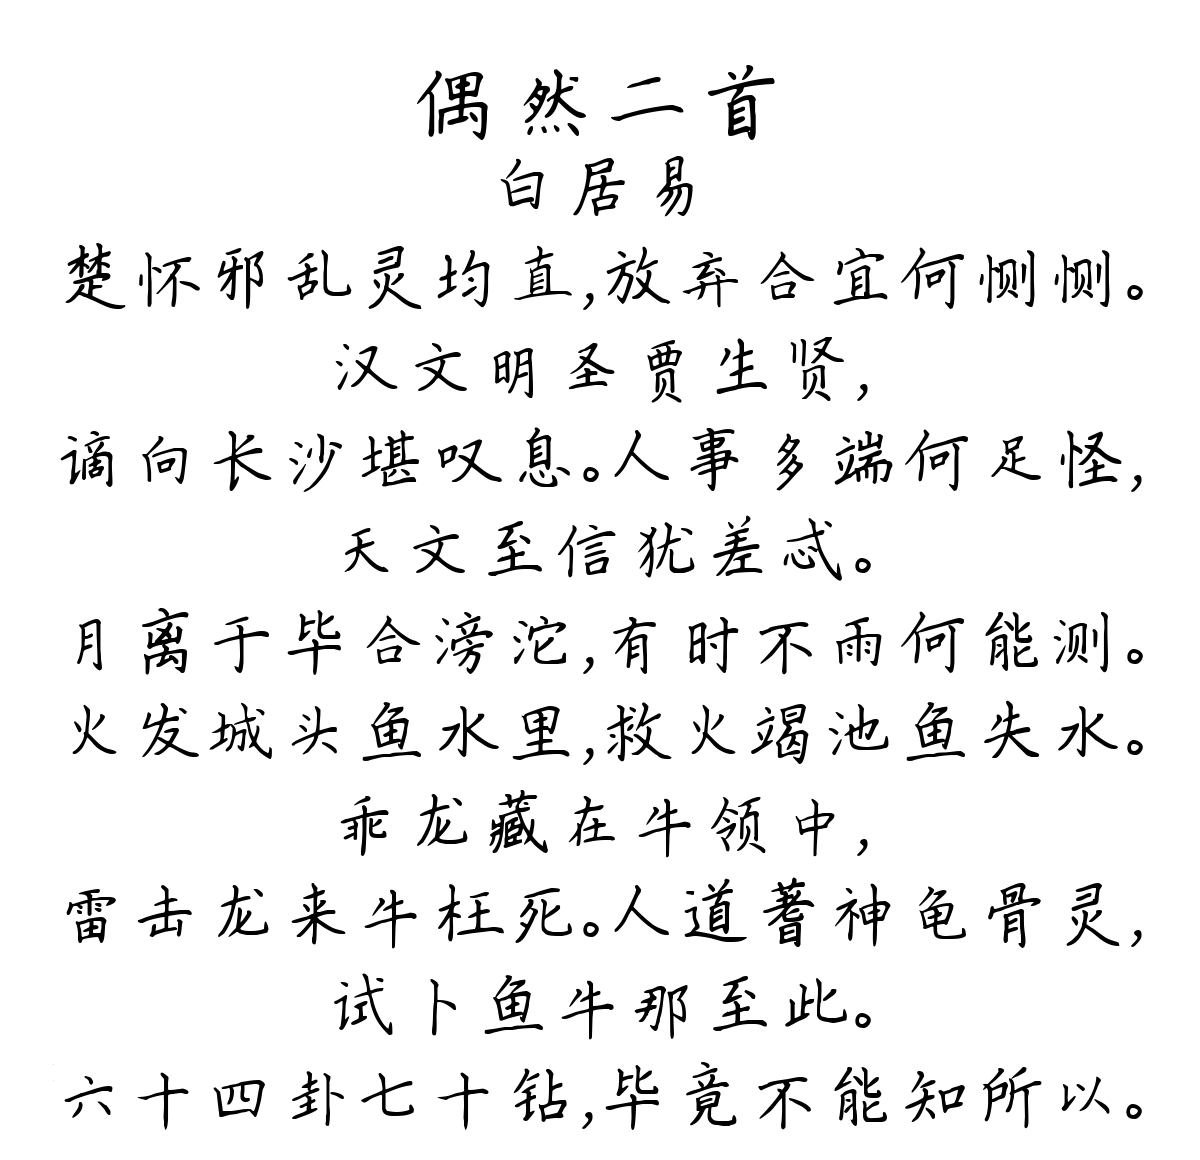 偶然二首
白居易
楚怀邪乱灵均直,放弃合宜何恻恻。
汉文明圣贾生贤,
谪向长沙堪叹息。人事多端何足怪,
天文至信犹差忒。
月离于毕合滂沱,有时不雨何能测。
火发城头鱼水里,救火竭池鱼失水。
乖龙藏在牛领中,
雷击龙来牛枉死。人道蓍神龟骨灵,
试卜鱼牛那至此。
六十四卦七十钻,毕竟不能知所以。